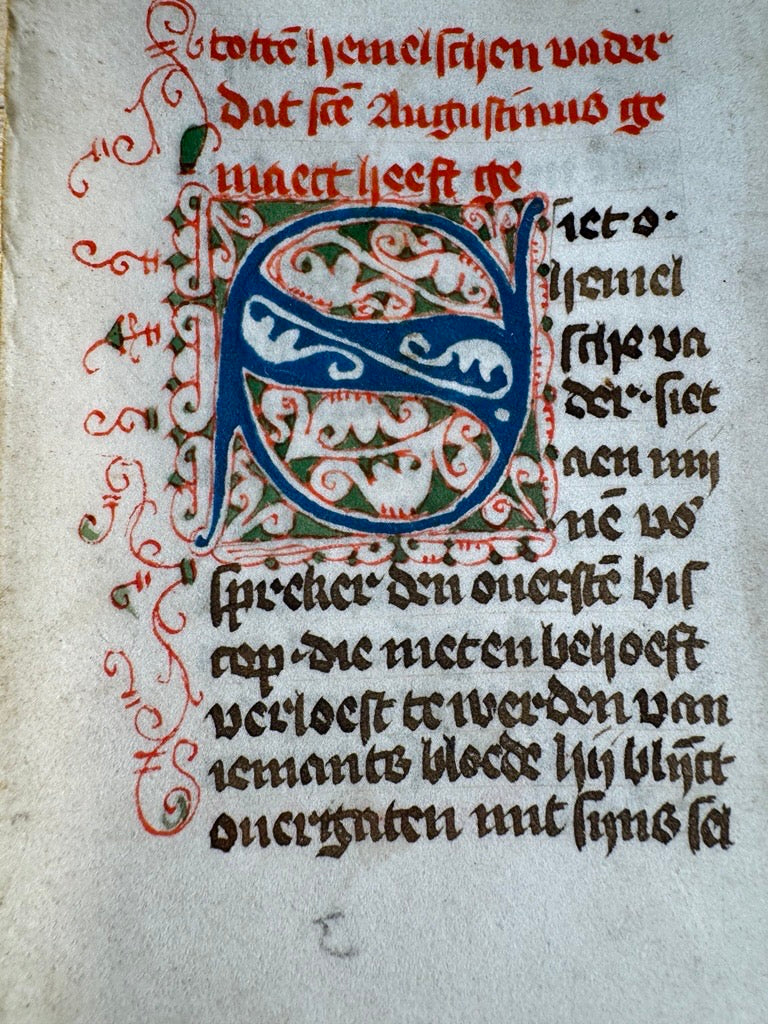 tottē hemelschen vader
dat scē Augustinus ge
maect heeft ge
Siet o·
hemel
sche va
der· siet
aen mij
nē vo'
spreker den ouerstē bis
cop· die niet en behoeft
verloest te werden van
iemants bloede hij blijct
ouergaten mit sijns sel